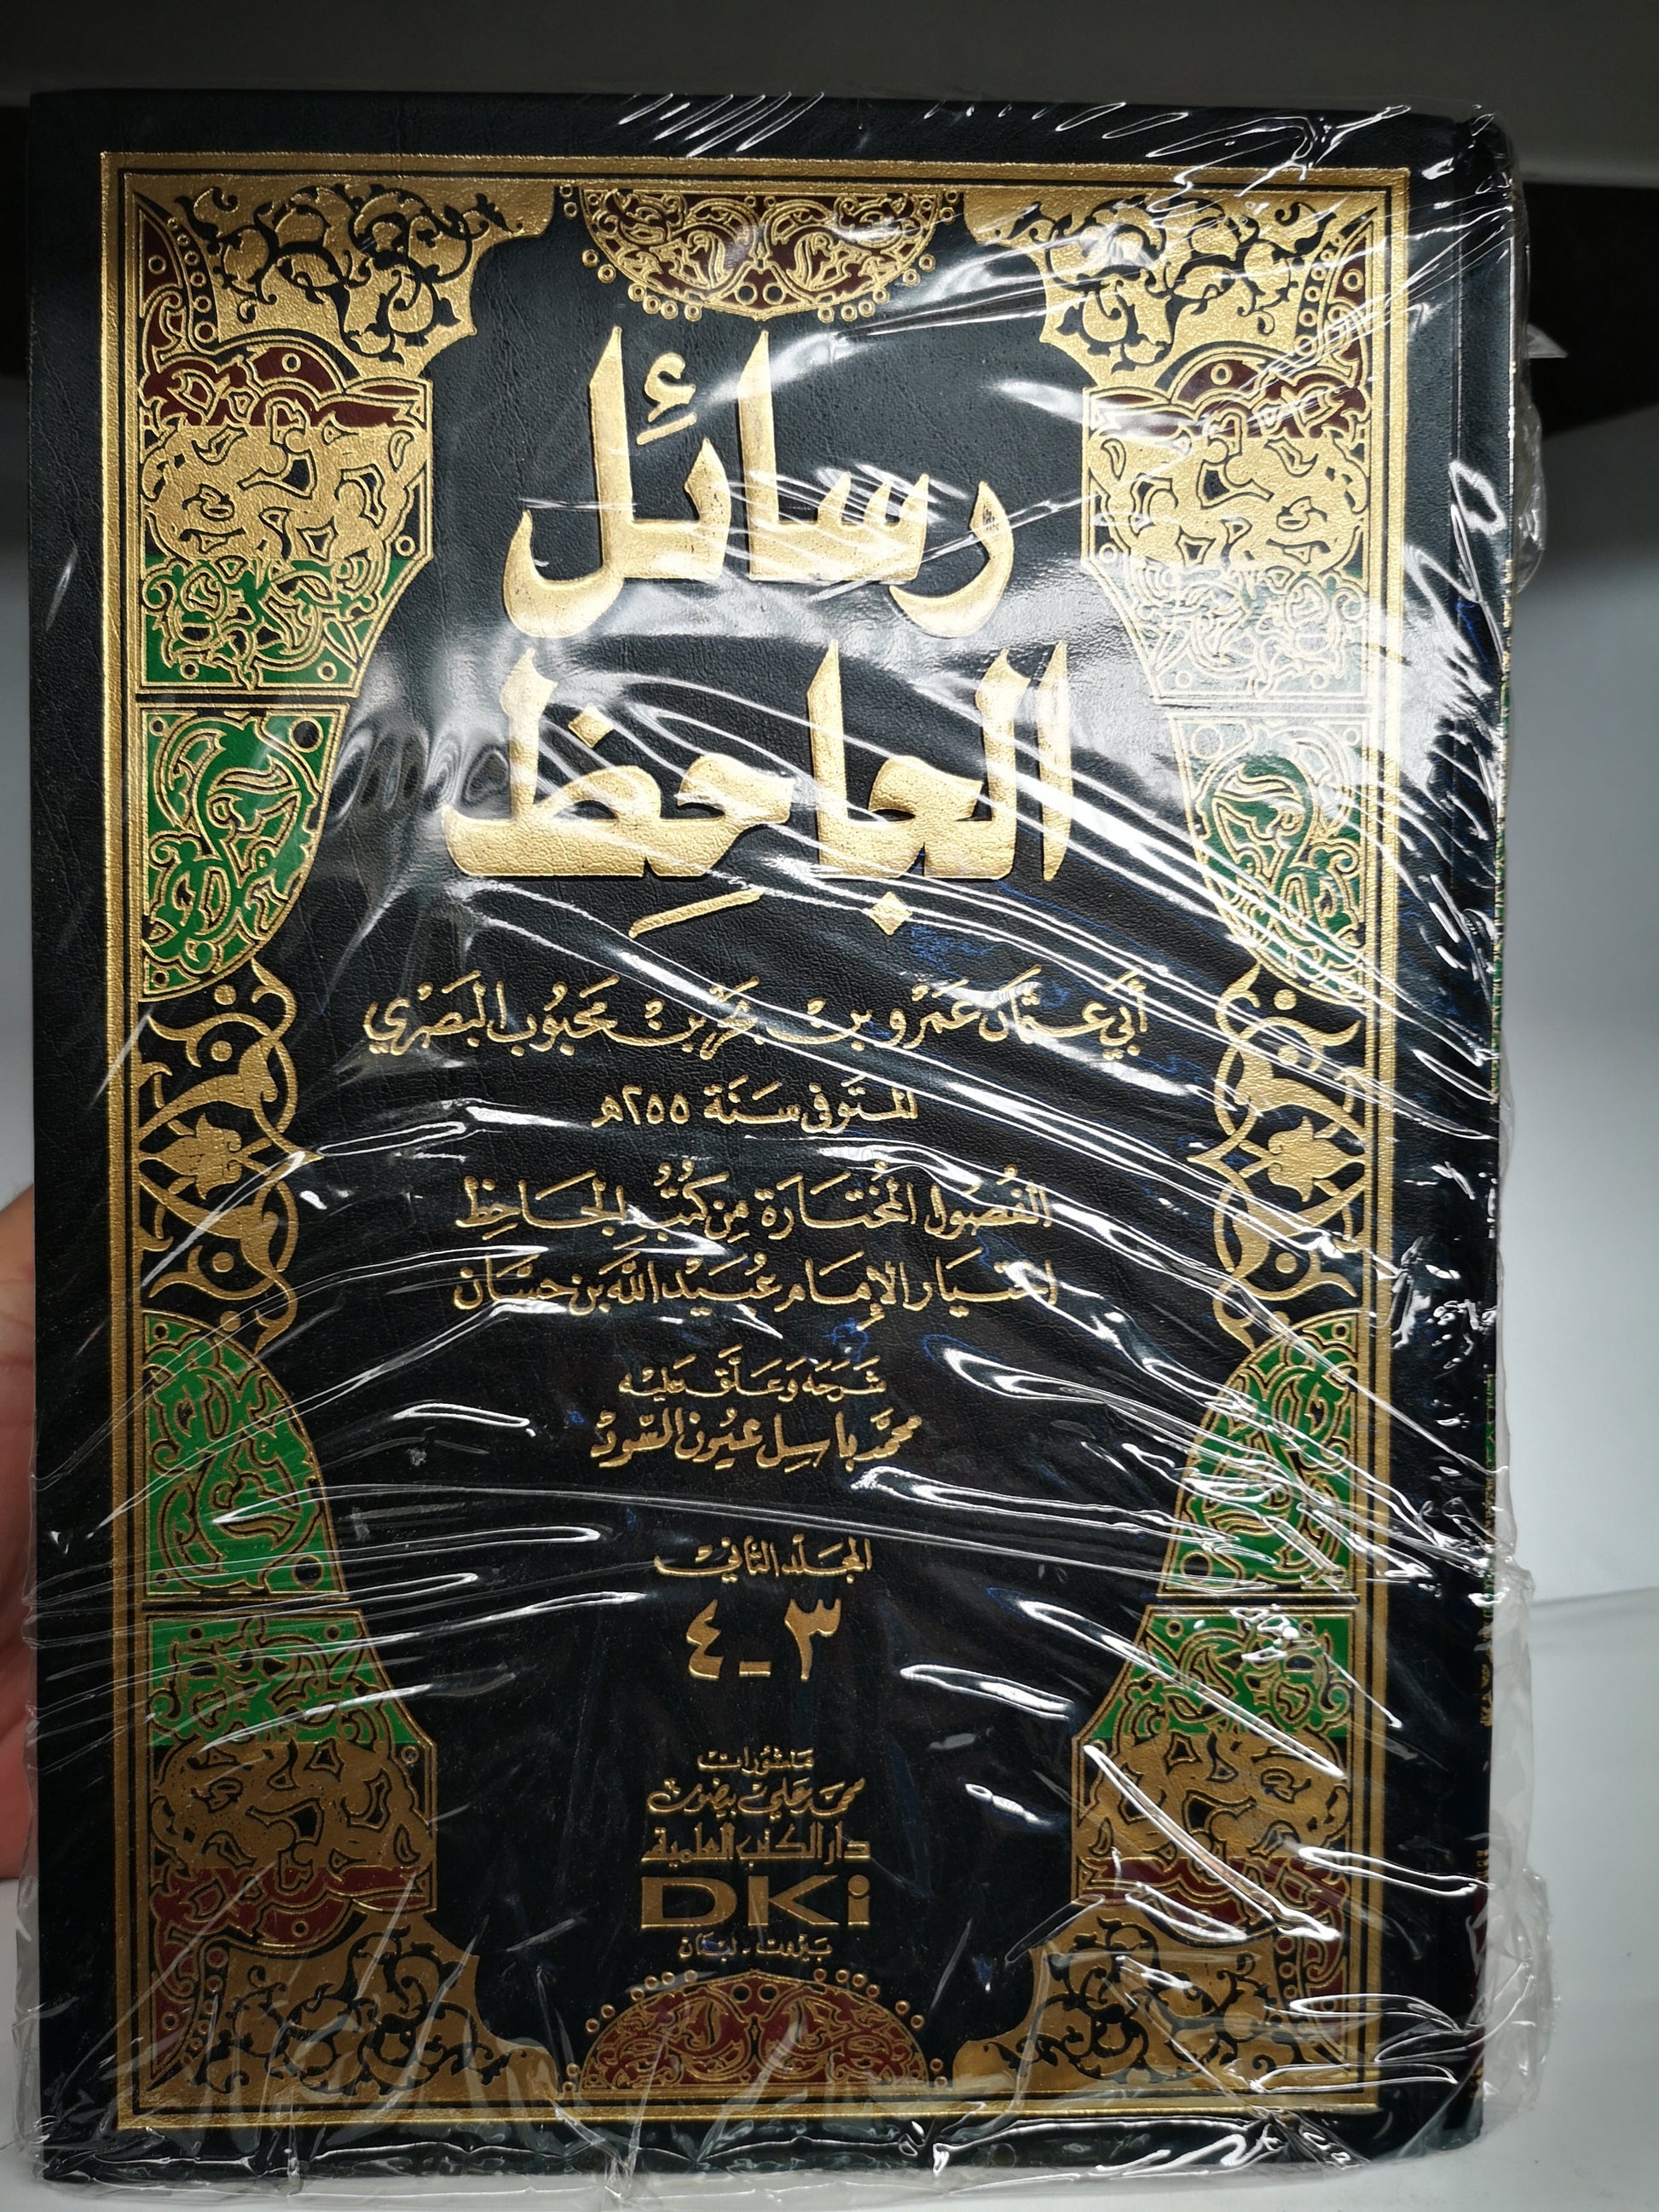 رسائل
الجاحِظ
أَبي عثمَان عَمْرو بنْ بحْر بنْ محَبُوب البَصْرِي
المتَوفى سَنَة ٢٥٥هـ
الفصُول المُختَارَة مِن كتُب الجَاحِظ
اختيَار الإمَام عُبَيْد اللَّه بن حسَّان
شَرَحَه وَعَلَّق عَليْه
محمَّد بَاسِل عيُون السّودْ
المجَلّد الثاني
٣ـ٤
منشورات
محمَّد عَلي بيضون
دار الكتب العلمية
DKi
بيروت ـ لبنان